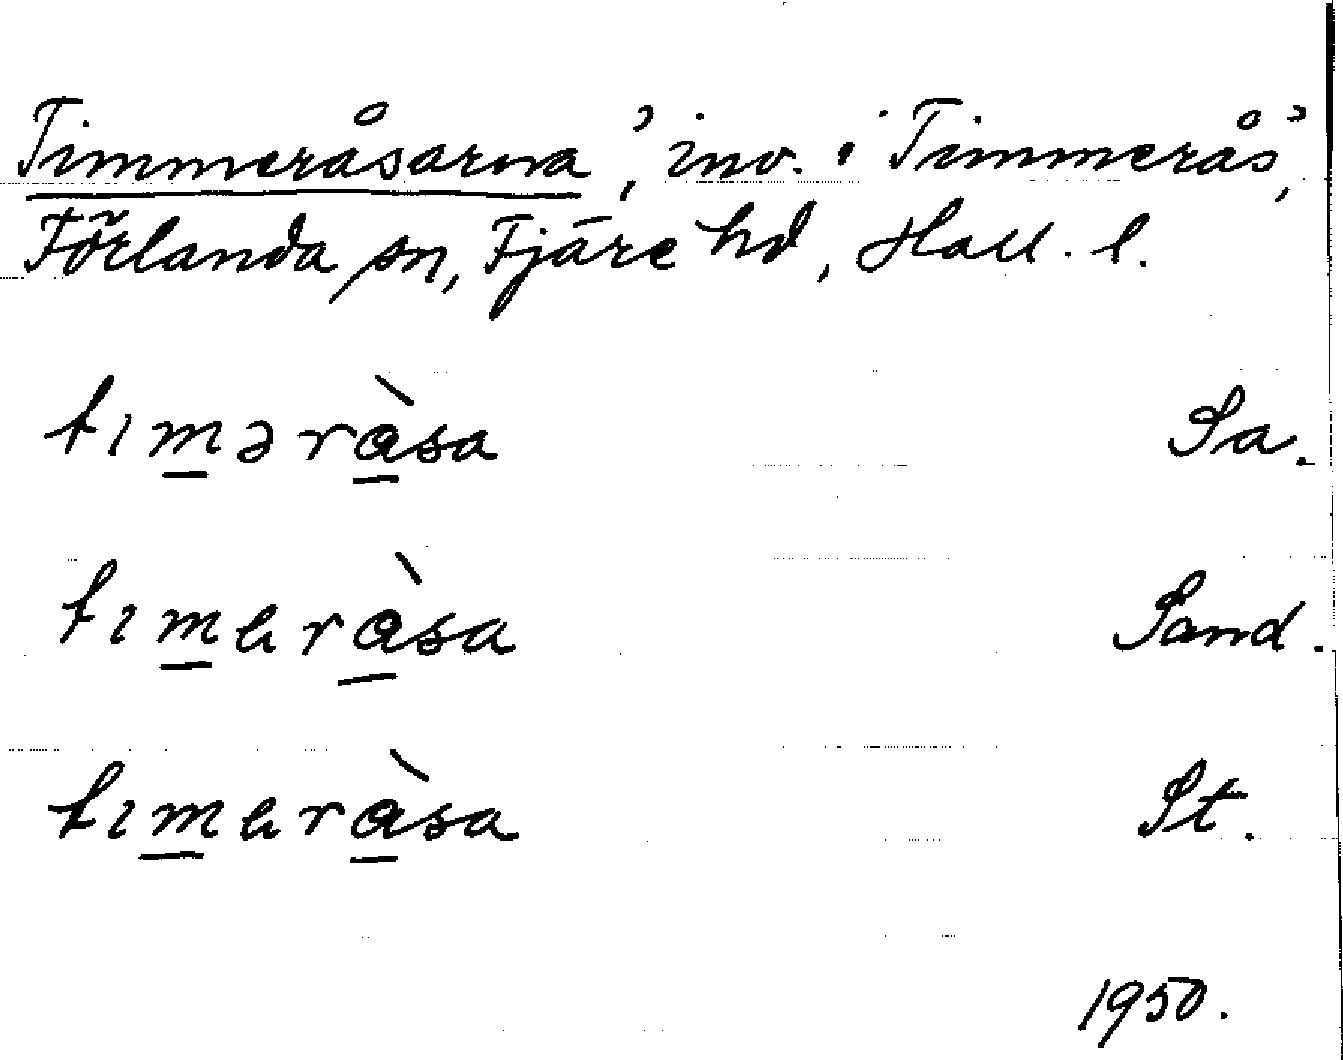 Timmeråsarna, ’inv. i Timmerås’,
Förlanda sn, Fjäre hd, Hall. l.
timəràsa Sa.
timɐràsa Sand.
timɐràsa St.
1950.